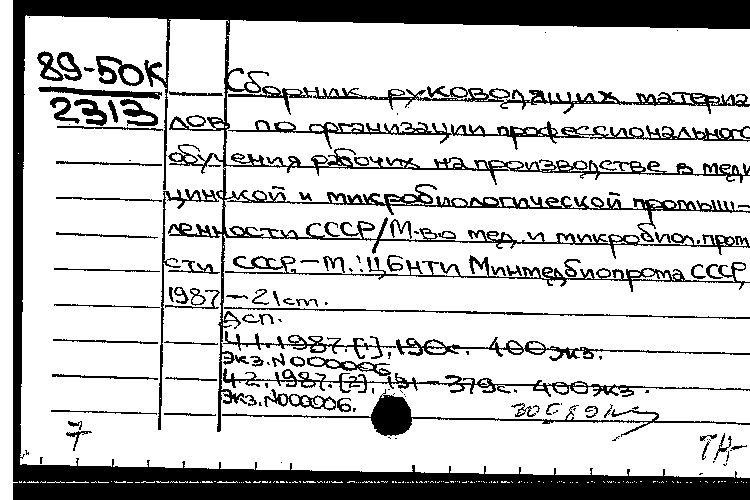 89-50К
2313
Сборник руководящих материа
лов по организации профессионального
обучения рабочих на производстве в меди
цинской и микробиологической промыш-
ленности СССР/М-во мед. и микробиол. пром
сти СССР. - М.: ЦБНТИ Минмедбиопрома СССР,
1987 - 21 см.
Дсп.
Ч.1. 1987. [1], 190с. 400экз.
Экз. N000006
Ч.2. 1987. [2], 191 - 379с. 400экз.
Экз. N000006.
7